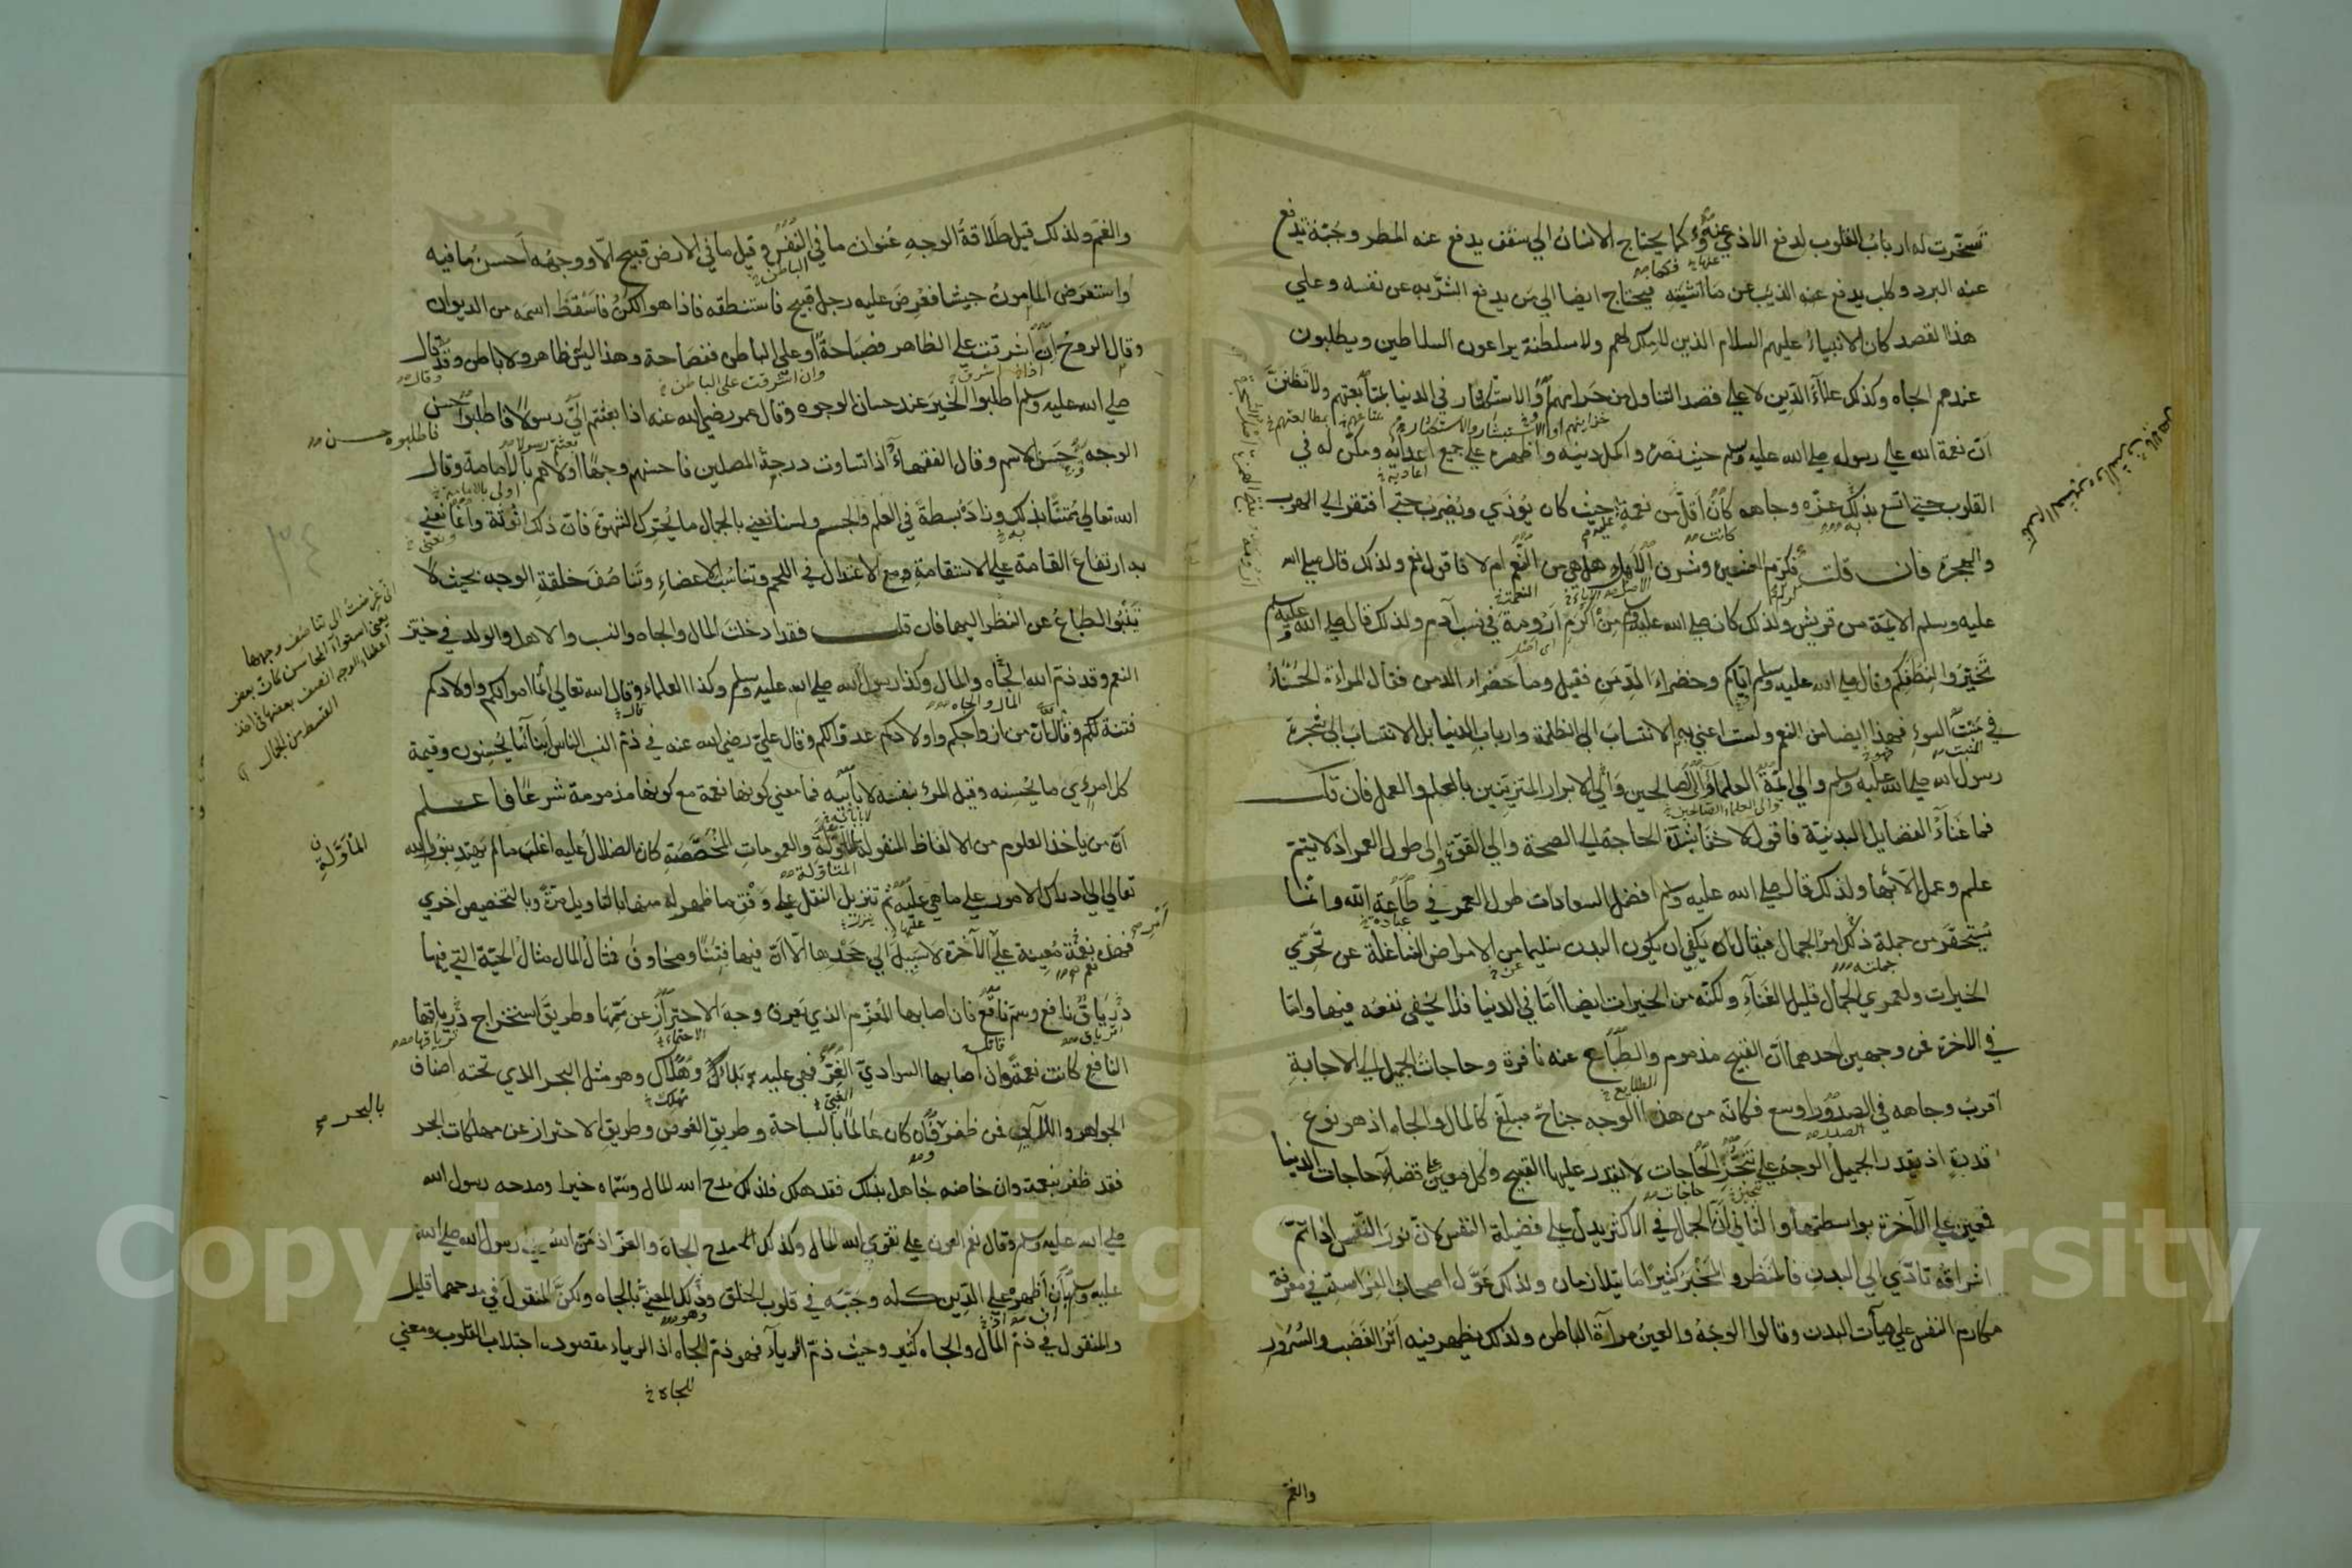 تسخرت له ارباب القلوب لدفع الاذي عنه وكما يحتاج الانسان الي سقف يدفع عنه المطر وجبة تدفع
عنه البرد وكلب يدفع عنه الذيب عن ماشيته فيحتاج ايضا الي من يدفع الشر به عن نفسه وعلي
هذا القصد كان الانبياء عليهم السلام الذين لا ملك لهم ولا سلطنة يراعون السلاطين ويطلبون
عندهم الجاه وكذلك علماء الدين لا علي قصد التناول من خزاينهم والاستكثار في الدنيا بمتابعتهم ولا تظنن
ان نعمة الله علي رسوله صلي الله عليه وسلم حيث نصره واكمل دينه واظهره علي جميع اعدائه ومكن له في
القلوب حتي اتسع بذلك عزه وجاهه كان اقل من نعمته حيث كان يؤذي ويضرب حتي افتقر الي الهرب
والهجرة فان قلت فكرم العشيرة وشرف الاهل هل هي من النعم ام لا فاقول نعم ولذلك قال صلي الله
عليه وسلم الايمة من قريش ولذلك كان صلي الله عليه وسلم من اكرم ارومة في نسب آدم ولذلك قال صلي الله عليه وسلم
تخيروا لنطفكم وقال صلي الله عليه وسلم اياكم وخضراء الدمن فقيل وما خضراء الدمن فقال المراءة الحسناء
في منبت السوء فهذا ايضا من النعم ولست اعني به الانتساب الي الظلمة وارباب الدنيا بل الانتساب الي شجرة
رسول الله صلي الله عليه وسلم والي ايمة العلماء والي الصالحين والي الابرار المتزينين بالعلم والعمل فان قلت
فما غناء الفضايل البدنية فاقول لا خفا بشدة الحاجة الي الصحة والي القوة والي طول العمر اذ لا يتم
علم وعمل الا بها ولذلك قال صلي الله عليه وسلم افضل السعادات طول العمر في طاعة الله وانما
يستحقر من جملة ذلك امر الجمال فيقال ان يكفي ان يكون البدن سليما من الامراض الشاغلة عن تحري
الخيرات ولعمري الجمال قليل الغناء ولكنه من الخيرات ايضا اما في الدنيا فلا يخفي نفعه فيها واما
في الاخرة فمن وجهين احدهما ان القبيح مذموم والطباع عنه نافرة وحاجات الجميل الي الاجابة
اقرب وجاهه في الصدور اوسع فكانه من هذا الوجه جناح مبلغ كالمال والجاه اذ هو نوع
قدرة اذ يقدر الجميل الوجه علي تنجز الحاجات لا يقدر عليها القبيح وكل معين علي قضاء حاجات الدنيا
فمعين علي الآخرة بواسطتها والثاني ان الجمال في الاكثر يدل علي فضيلة النفس لان نور النفس اذا تم
اشراقه تادي الي البدن فالمنظر والمخبر كثيرا ما يتلازمان ولذلك عول اصحاب الفراسة في معرفة
مكارم النفس علي هيآت البدن وقالوا الوجه والعين مرآة الباطن ولذلك يظهر فيه اثر الغضب والسرور
والغم
والغم ولذلك قيل طلاقة الوجه عنوان ما في النفس وقيل ما في الارض قبيح الا ووجهه احسن ما فيه
واستعرض المامون جيشا فعرض عليه رجل قبيح فاستنطقه فاذا هو الكن فاسقط اسمه من الديوان
وقال الروح ان اشرقت علي الظاهر فصباحة او علي الباطن ففصاحة وهذا ليس ظاهر ولا باطن وقد قال
صلي الله عليه وسلم اطلبوا الخير عند حسان الوجوه وقال عمر رضي الله عنه اذا بعثتم الي رسولا فاطلبوا حسن
الوجه حسن الاسم وقال الفقهاء اذا تساوت درجة المصلين فاحسنهم وجها اولاهم بالامامة وقال
الله تعالي ممتنا بذلك وزاده بسطة في العلم والجسم ولسنا نعني بالجمال ما يحرك الشهوة فان ذلك انوثة وانما نعني
به ارتفاع القامة علي الاستقامة مع الاعتدال في اللحم وتناسب الاعضاء وتناصف خلقة الوجه بحيث لا
تنبو الطباع عن النظر اليها فان قلت فقد ادخلت المال والجاه والنسب والاهل والولد في حيز
النعم وقد ذم الله الجاه والمال وكذا رسول الله صلي الله عليه وسلم وكذا العلماء وقال الله تعالي انما اموالكم واولادكم
فتنة لكم وقال ان من ازواجكم واولادكم عدوا لكم وقال علي رضي الله عنه في ذم النسب الناس ابناء ما يحسنون وقيمة
كل امرئ ما يحسنه وقيل المرء بنفسه لا بابيه فما معني كونها نعمة مع كونها مذمومة شرعا فاعلم
ان من ياخذ العلوم من الالفاظ المنقولة المؤولة والعمومات المخصصة كان الضلال عليه اغلب ما لم يهتد بنور الله
تعالي الي ادراك الامور علي ما هي عليه ثم تنزيل النقل علي وفق ما ظهر له منها بالتاويل مرة وبالتخصيص اخري
فهذه نعمة معينة علي الآخرة لا سبيل الي جحدها الا ان فيها فتنا ومخاوف فمثال المال مثال الحية التي فيها
درياق نافع وسم ناقع فان اصابها المعزم الذي يعرف وجه الاحتراز عن سمها وطريق استخراج درياقها
النافع كانت نعمة وان اصابها السوادي الغر فهي عليه بلاء وهلاك وهو مثل البحر الذي تحته اصناف
الجواهر واللآلي فمن ظفر فان كان عالما بالسباحة وطريق الغوص وطريق الاحتراز عن مهلكات البحر
فقد ظفر بنعمه وان خاضه جاهل بذلك فقد هلك فلذلك مدح الله المال وسماه خيرا ومدحه رسول الله
صلي الله عليه وسلم وقال نعم العون علي تقوي الله المال وكذلك مدح الجاه والعز اذ من الله علي رسول الله صلي الله
عليه وسلم بان اظهره علي الدين كله وحببه في قلوب الخلق وذلك المعني بالجاه ولكن المنقول في مدحهما قليل
والمنقول في ذم المال والجاه كثير وحيث ذم الرياء فهو ذم الجاه اذ الرياء مقصوده اجتلاب القلوب ومعني
للجاه
فاطلبوه حسن
المأولة
بالبحر
Copyright © King Saud University